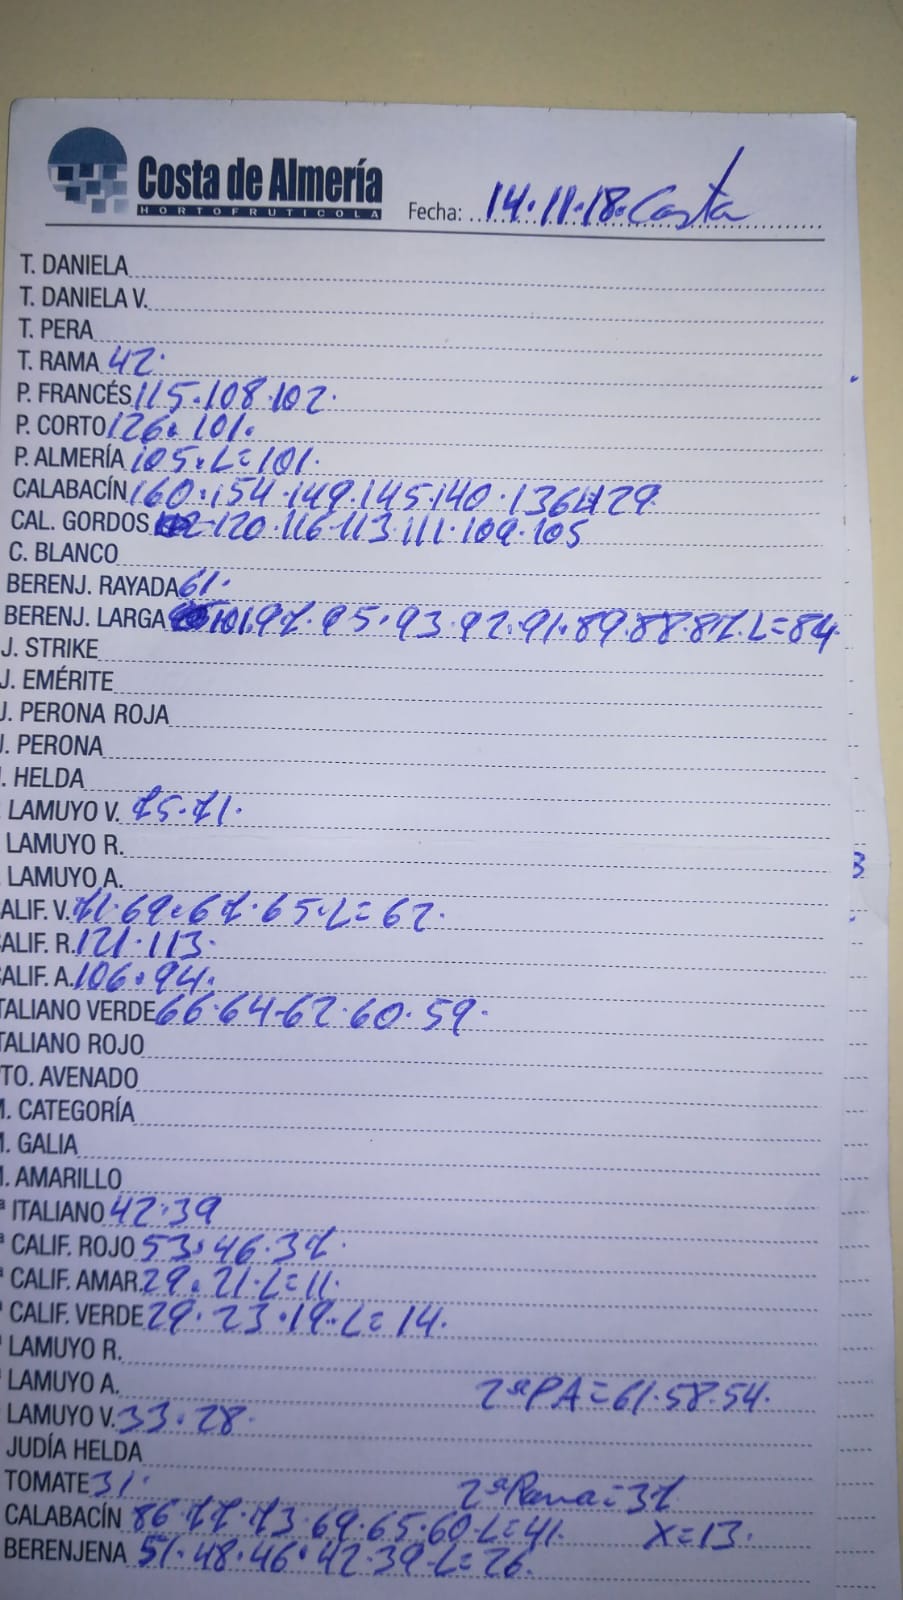 Costa de Almería
HORTOFRUTICOLA
Fecha: 14.11.18. Costa
T. DANIELA
T. DANIELA V.
T. PERA
T. RAMA 42.
P. FRANCÉS 115.108.102.
P. CORTO 126.101.
P. ALMERÍA 105.L=101.
CALABACÍN 160.154.149.145.140.136.129.
CAL. GORDOS 120.116.113.111.109.105
C. BLANCO
BERENJ. RAYADA 61.
BERENJ. LARGA 101.97.95.93.92.91.89.88.87.L=84.
J. STRIKE
J. EMÉRITE
J. PERONA ROJA
J. PERONA
. HELDA
LAMUYO V. 75.71.
LAMUYO R.
LAMUYO A.
ALIF. V. 71.69.67.65.L=62.
ALIF. R. 121.113.
ALIF. A. 106.94.
TALIANO VERDE 66.64.62.60.59.
TALIANO ROJO
TO. AVENADO
. CATEGORÍA
. GALIA
. AMARILLO
ª ITALIANO 42.39
ª CALIF. ROJO 53.46.37.
ª CALIF. AMAR. 29.21.L=11.
CALIF. VERDE 29.23.19.L=14.
LAMUYO R.
LAMUYO A. 2ªPA=61.58.54.
LAMUYO V. 33.28.
JUDÍA HELDA
TOMATE 31. 2ªRama=37
CALABACÍN 86.77.73.69.65.60.L=41. X=13.
BERENJENA 51.48.46.42.39.L=26.